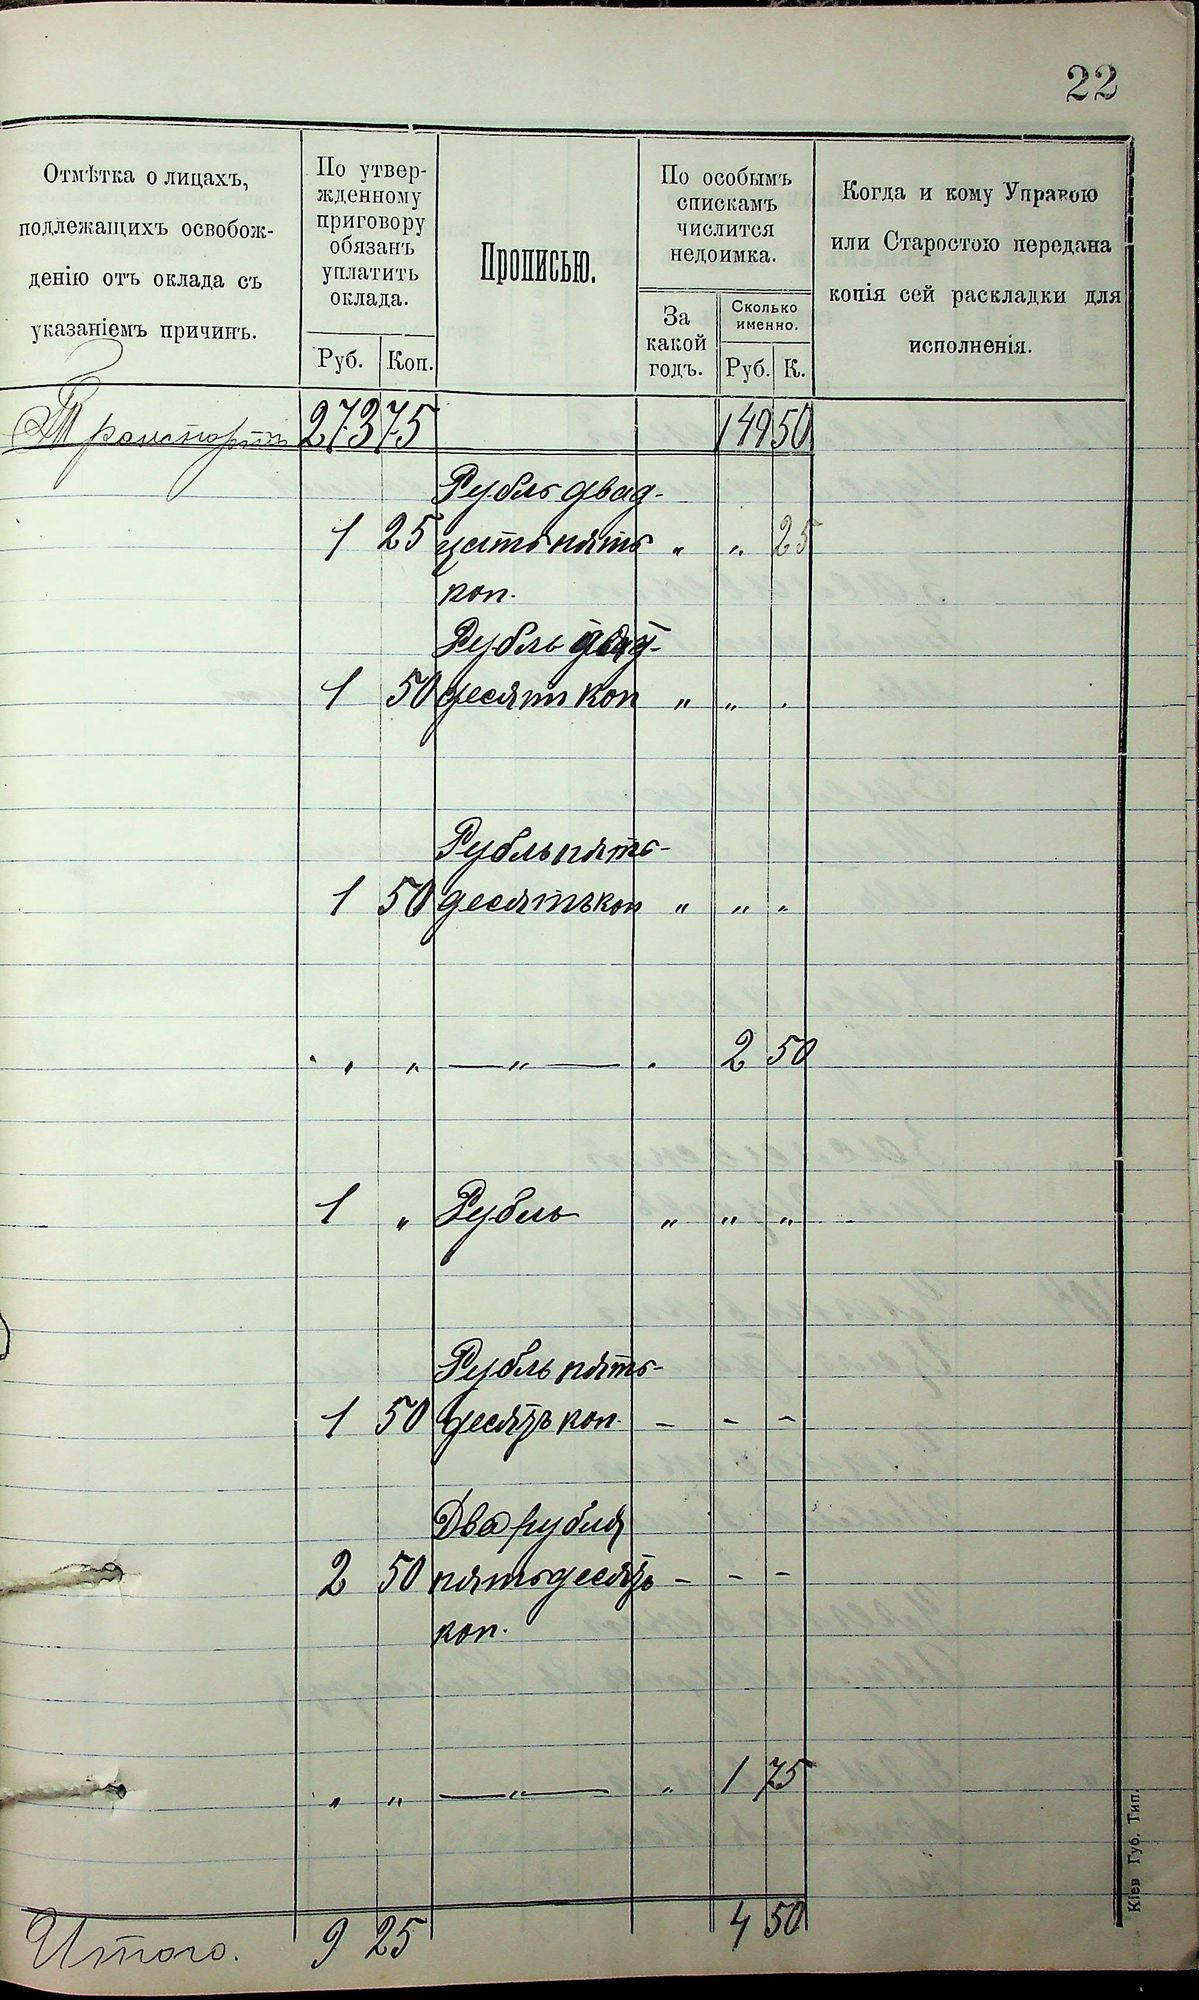 22
Отмѣтка о лицахъ,
подлежащихъ освобож-
денію отъ оклада съ
указаніемъ причинъ.
По утвер-
жденному
приговору
обязанъ
уплатить
оклада.
Руб. Коп.
Прописью.
По особымъ
спискамъ
числится
недоимка.
За
какой
годъ.
Сколько
именно.
Руб. К.
Когда и кому Управою
или Старостою передана
копія сей раскладки для
исполненія.
Транспортъ 273 75 149 50
Рубль двад-
1 25 цать пять " " 25
коп.
Рубль
1 50 десят коп " " .
Рубль пять-
1 50 десятъ коп " " "
" " — " — . 2 50
1 " Рубль " " "
Рубль пять-
1 50 десятъ коп. - - -
Два рубля
2 50 пятьдесятъ - - -
коп.
" " — " — " 1 75
Итого. 9 25 4 50
Кіев Губ. Тип.